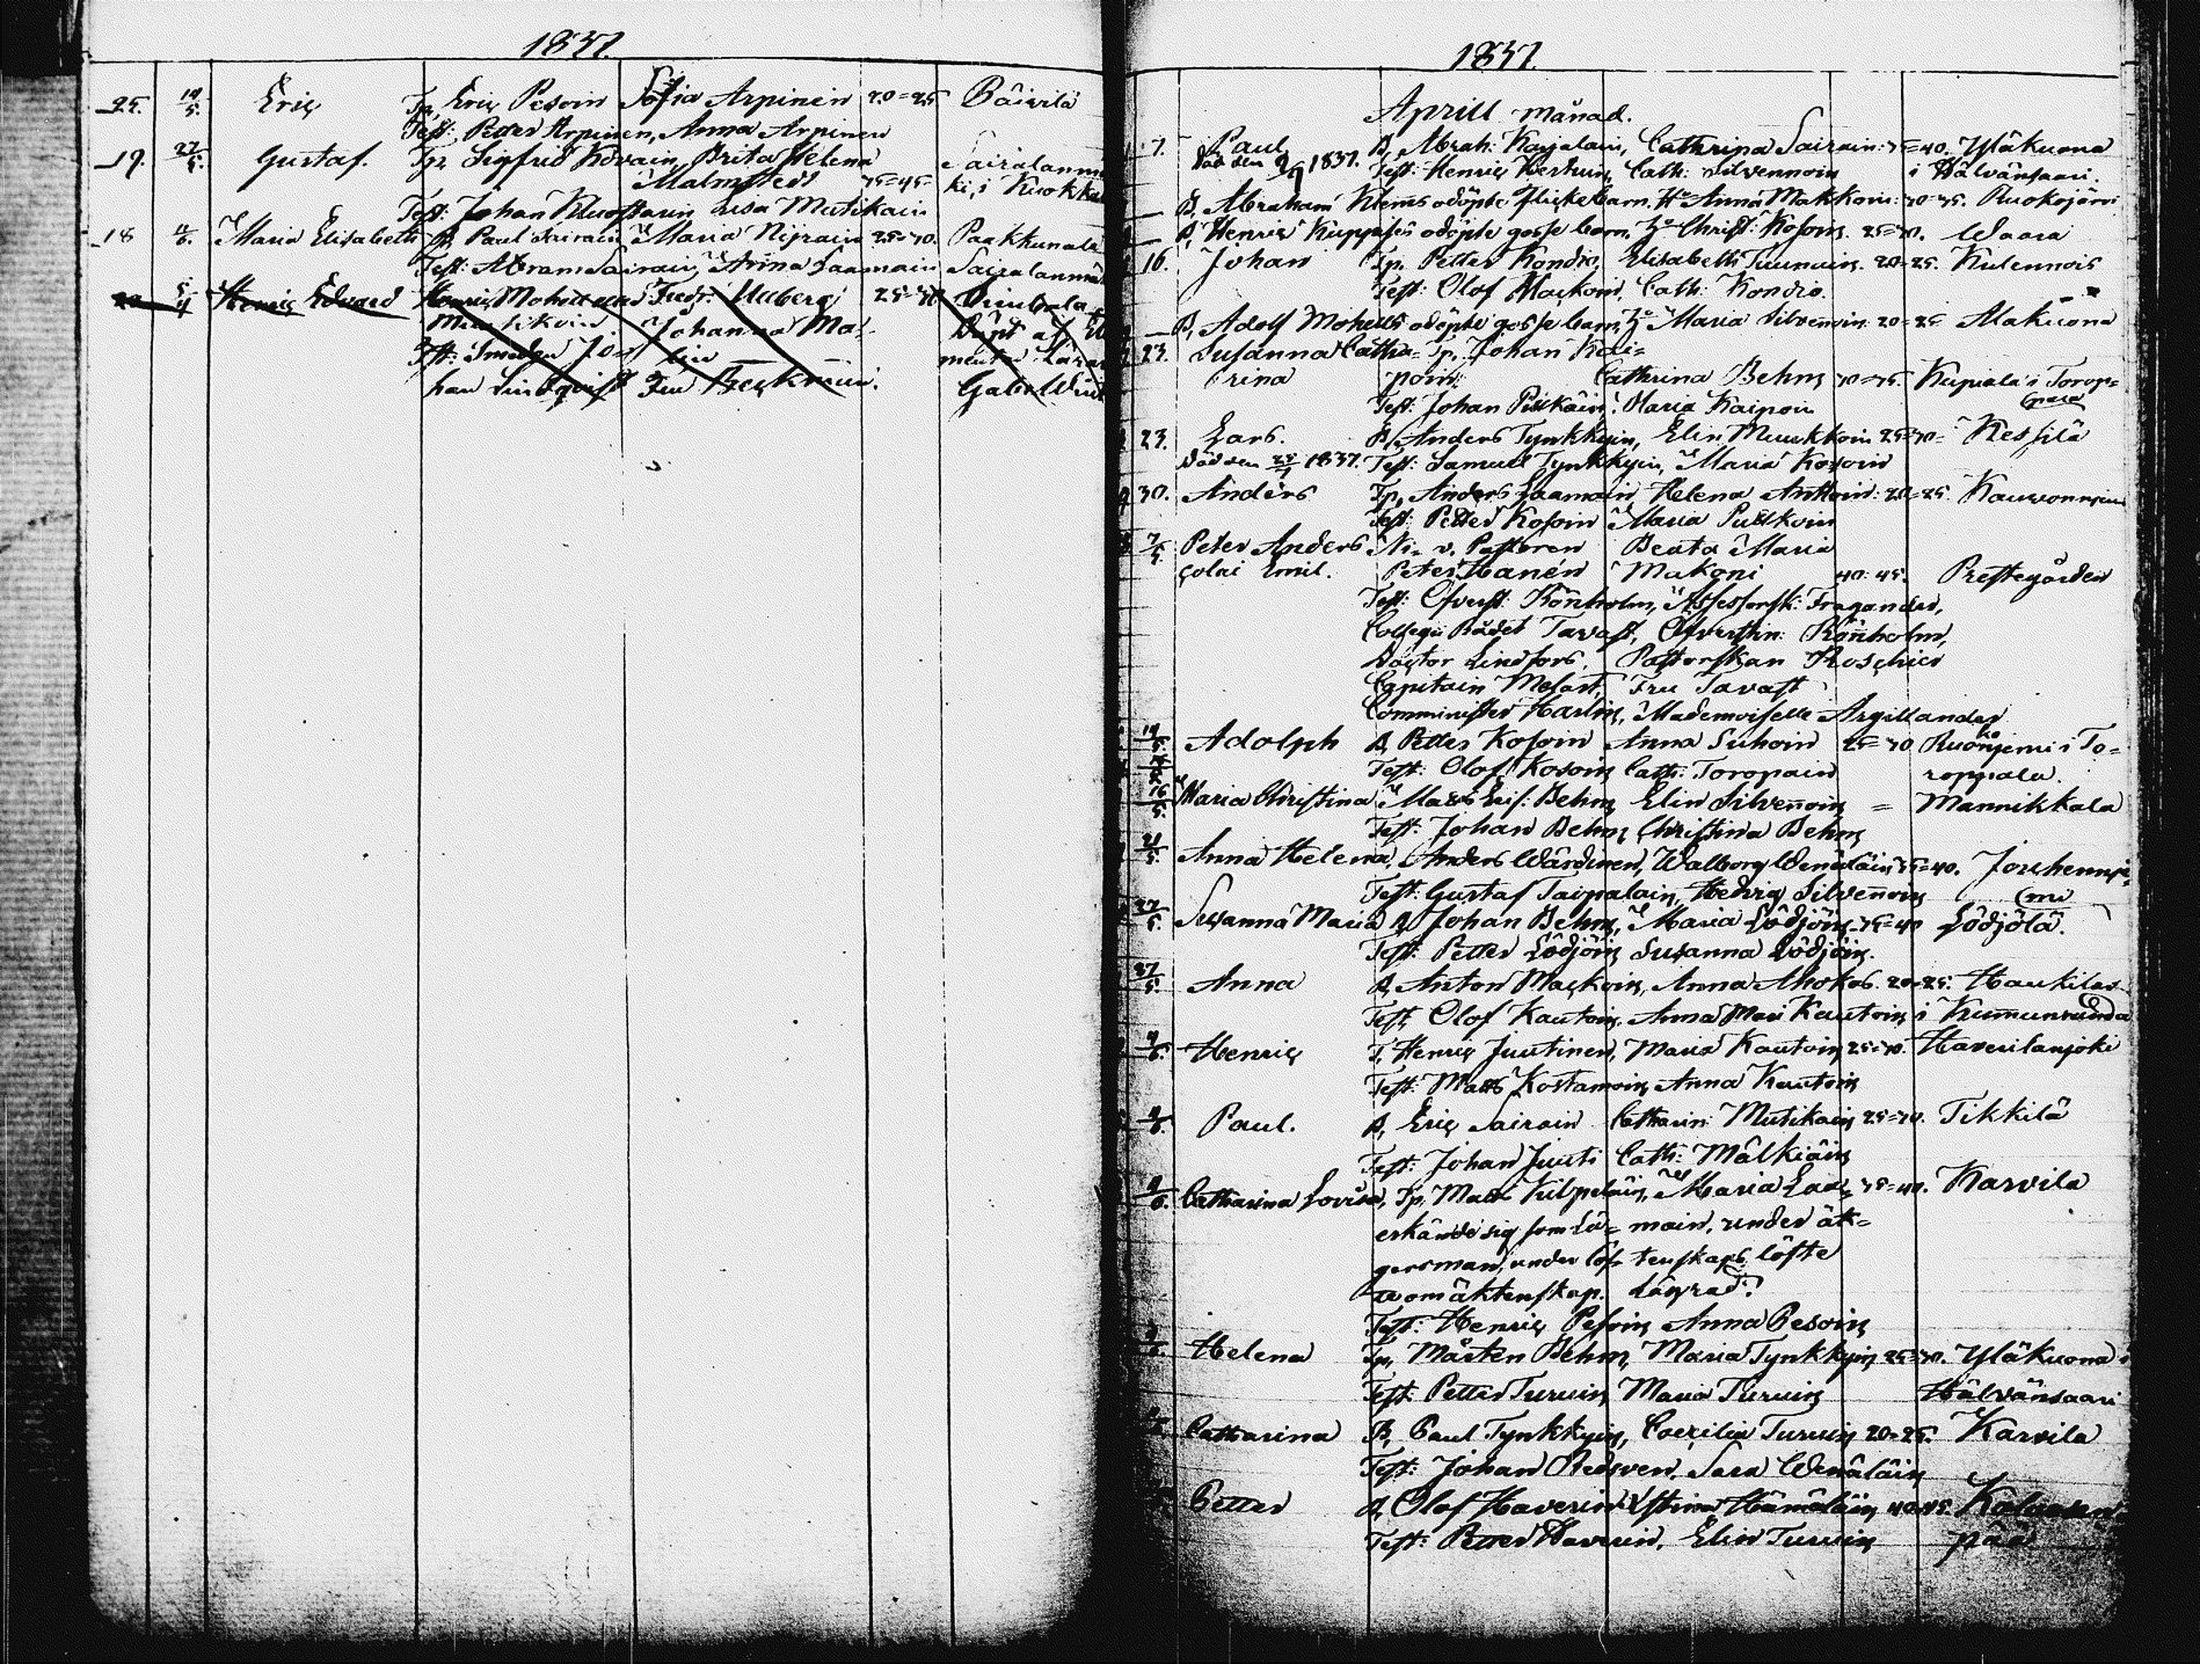 1837.
25. 14/5. Eric Tp, Eric Pesoin Sofia Arpinen 20=25 Päivilä
Test: Petter Arpinen, Anna Arpinen
19. 27/5. Gustaf. Tp. Sigfrid Kovain, Brita Helena Sairalanmä
Malmstedt 35=45= ki, i Kuokka
Test: Johan Kluostarin Lisa Mutikain
18 4/6. Maria Elisabeth B, Paul Sairain Maria Nijrain 25=30. Paakkunala
Test: Abram Sairain, Anna Laamain Sairalanmä
Henric Edvard Henric Fredr: Uuberg 25=30
Johanna Ma=
Test: Smeden Jo= lin
han Lindqvist Fru Beckman. Gabr. Wini
1837.
Aprill månad.
7. Paul B, Abrah: Karjalain, Cathrina Sairain: 35=40. Yläkuona
död den 1837. Test: Henric Kerttuin, Cath: Silvennoin i Hälvänsaari.
B, Abraham Klems odöpte flickebarn, Hu Anna Makkoin: 30=35. Ruokojärvi
B, Henric Kuppises odöpte gosse barn. Hu Christ: Kosoin. 25=30. Waara
16. Johan Tp. Petter Kondio. Elisabeth Tuunuin. 20=25. Kulennois
Test: Olof Mackoin, Cath: Kondio.
B, Adolf Mohells odöpte gosse barn, Hu Maria Silvennoin 20=25 Alakuona
23. Susanna Catha= Tp, Johan Kai=
rina poin. Cathrina Behm 30=35. Kupiala i Torop=
Test: Johan Pulkäin. Maria Kaipoin (pala
23. Lars. B, Anders Tynkkyin, Elin Muukkoin 25=30= Kessilä
död den 25/7 1837. Test: Samuel Tynkkyin, Maria Kosoin
30. Anders Tp, Anders Laamain Helena Anttoin: 20=25. Kauvonniemi
Test: Petter Kosoin Maria Pulkoin
7/5. Peter Anders Ni= v. Pastoren Beata Maria
colai Emil. Peter Hanén Makoni 40=45. Prestegården
Test: Öfverst: Könholm, Assessorsk: Fragander,
Collegii Rådet Tavast, Öfverstin: Könholm,
Doctor Lindfors, Pastorskan Roschier
Capitain Melart, Fru Tavast
Comminister Harlin, Mademoiselle Argillander
14/5. Adolph B, Petter Kosoin Anna Suhoin 25=30 Ruokoniemi i To=
Test: Olof Kosoin Cath: Toropain roppala.
16/5. Maria Christina Mats Eris: Behm, Elin Silvennoin = Mannikkala
Test: Johan Behm, Christina Behm
21/5. Anna Helena, Anders Wärdinen, Walborg Wenäläin 35=40. Jouhennie=
Test: Gustaf Taipalain, Hedvig Silvennoin (mi
27/5. Susanna Maria B Johan Behm, Maria Lödjöin 35=40 Lödjölä.
Test: Petter Lödjöin Susanna Lödjöin.
27/5. Anna B, Anton Mackoin, Anna Ahokas. 20=25. Haukilas
Test, Olof Kautoin, Anna Mari Kautoin i Kummunrunda
4/6. Henric T. Henric Juutinen, Maria Kautoin 25=30. Haverilanjoki
Test: Matts Kostamoin, Anna Kautoin
4/6. Paul. B, Eric Sairain Catharin: Mutikain 25=30. Tikkilä
Test: Johan Juuti Cath: Mälkiäin
4/6. Catharina Lovisa, Tp, Matts Kilpeläin, Maria Laa= 35=40. Karvila
erkände sig som Lä= main, under äk=
gersman, under löf= tenskaps löfte
te om äktenskap. Lägrad.
Test: Henric Pesoin Anna Pesoin
Helena Tp, Mårten Behm, Maria Tynkkyin 25=30. Yläkuona i
Test: Petter Turuin Maria Turuin Hälvänsaari
Catharina B, Paul Tynkkyin, Coecilia Turuin 20=25. Karvila
Test: Johan Redsven, Sara Wenäläin
Petter B, Olof Haverin Stina Hämäläin 40=45.
Test: Petter Haverin. Elin Turuin pää